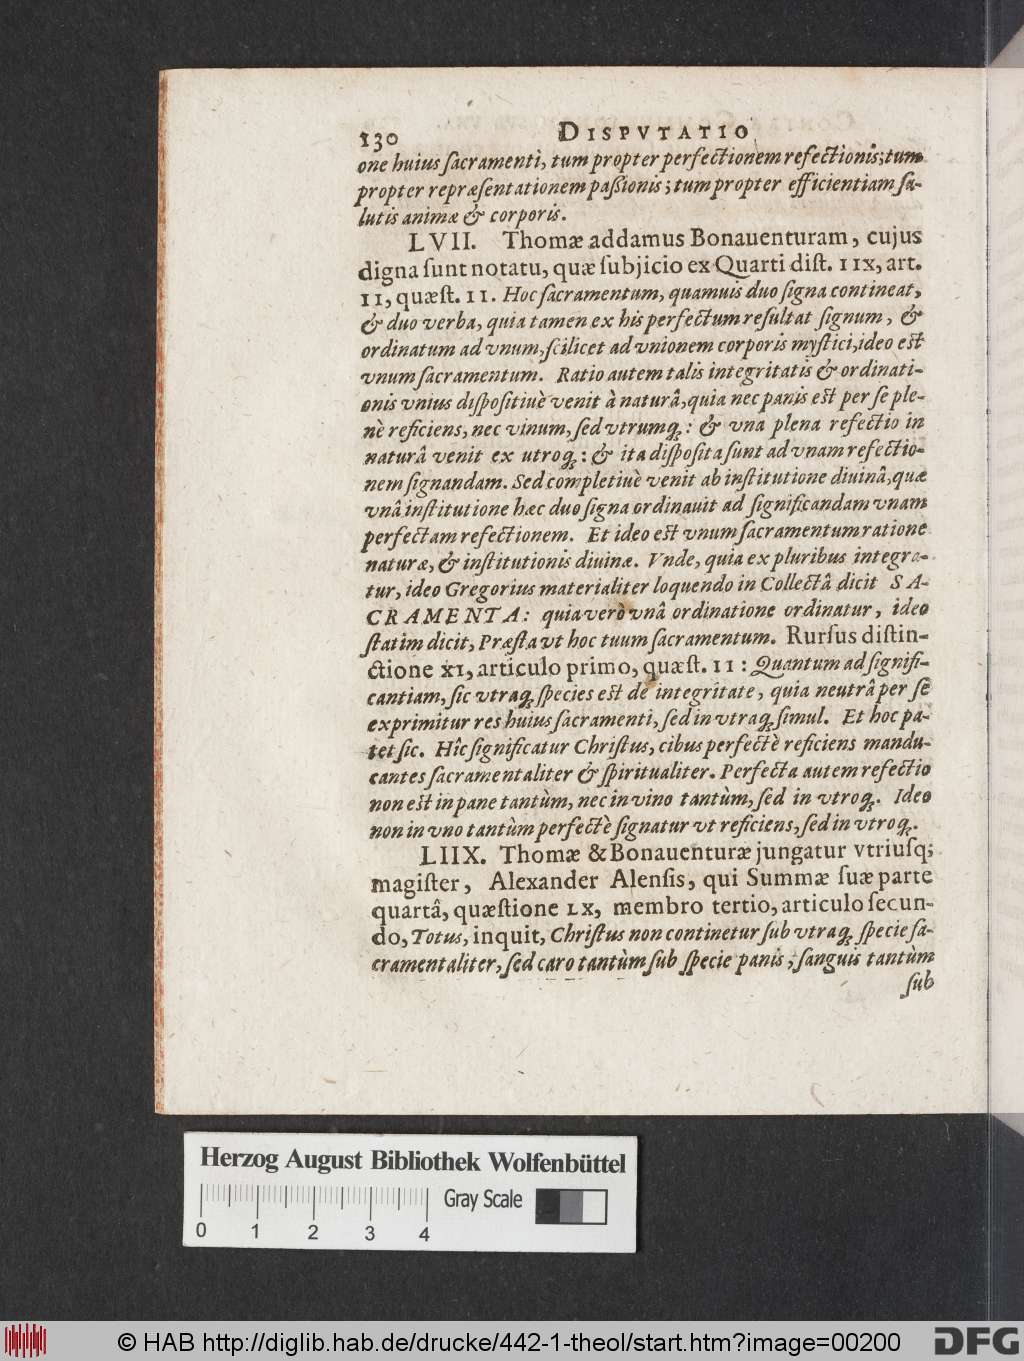 130 DISPVTATIO
one huius ſacramenti, tum propter perfectionem refectionis; tum
propter repræſentationem paßionis; tum propter efficientiam ſa-
lutis animæ & corporis.
LVII. Thomæ addamus Bonauenturam, cujus
digna ſunt notatu, quæ ſubjicio ex Quarti diſt. IIX, art.
II, quæſt. II. Hoc ſacramentum, quamuis duo ſigna contineat,
& duo verba, quia tamen ex his perfectum reſultat ſignum, &
ordinatum ad vnum, ſcilicet ad vnionem corporis myſtici, ideo eſt
vnum ſacramentum. Ratio autem talis integritatis & ordinati-
onis vnius diſpoſitiuè venit à naturâ, quia nec panis eſt per ſe ple-
nè reficiens, nec vinum, ſed vtrumq;: & vna plena refectio in
naturâ venit ex utroq;: & ita diſpoſita ſunt ad vnam refectio-
nem ſignandam. Sed completiuè venit ab inſtitutione diuinâ, quæ
vnâ inſtitutione hæc duo ſigna ordinauit ad ſignificandam vnam
perfectam refectionem. Et ideo eſt vnum ſacramentum ratione
naturæ, & inſtitutionis diuinæ. Vnde, quia ex pluribus integra-
tur, ideo Gregorius materialiter loquendo in Collectâ dicit SA-
CRAMENTA: quia verò vnâ ordinatione ordinatur, ideo
ſtatim dicit, Præſta vt hoc tuum ſacramentum. Rurſus diſtin-
ctione XI, articulo primo, quæſt. II: Quantum ad ſignifi-
cantiam, ſic vtraq; ſpecies eſt de integritate, quia neutrâ per ſe
exprimitur res huius ſacramenti, ſed in vtraq; ſimul. Et hoc pa-
tet ſic. Hîc ſignificatur Chriſtus, cibus perfectè reficiens mandu-
cantes ſacramentaliter & ſpiritualiter. Perfecta autem refectio
non eſt in pane tantùm, nec in vino tantùm, ſed in vtroq;. Ideo
non in vno tantùm perfectè ſignatur vt reficiens, ſed in vtroq;.
LIIX. Thomæ & Bonauenturæ jungatur vtriuſq;
magiſter, Alexander Alenſis, qui Summæ ſuæ parte
quartâ, quæſtione LX, membro tertio, articulo ſecun-
do, Totus, inquit, Chriſtus non continetur ſub vtraq; ſpecie ſa-
cramentaliter, ſed caro tantùm ſub ſpecie panis, ſanguis tantùm
ſub
Herzog August Bibliothek Wolfenbüttel
Gray Scale
0 1 2 3 4
© HAB http://diglib.hab.de/drucke/442-1-theol/start.htm?image=00200 DFG